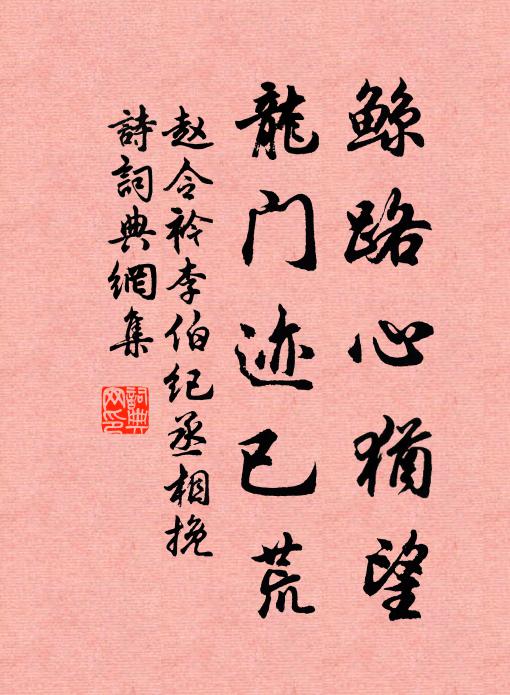 鲸路心猶望
龍门迹已荒
赵令衿李伯纪丞相挽
詩詞典網集
詞典网印